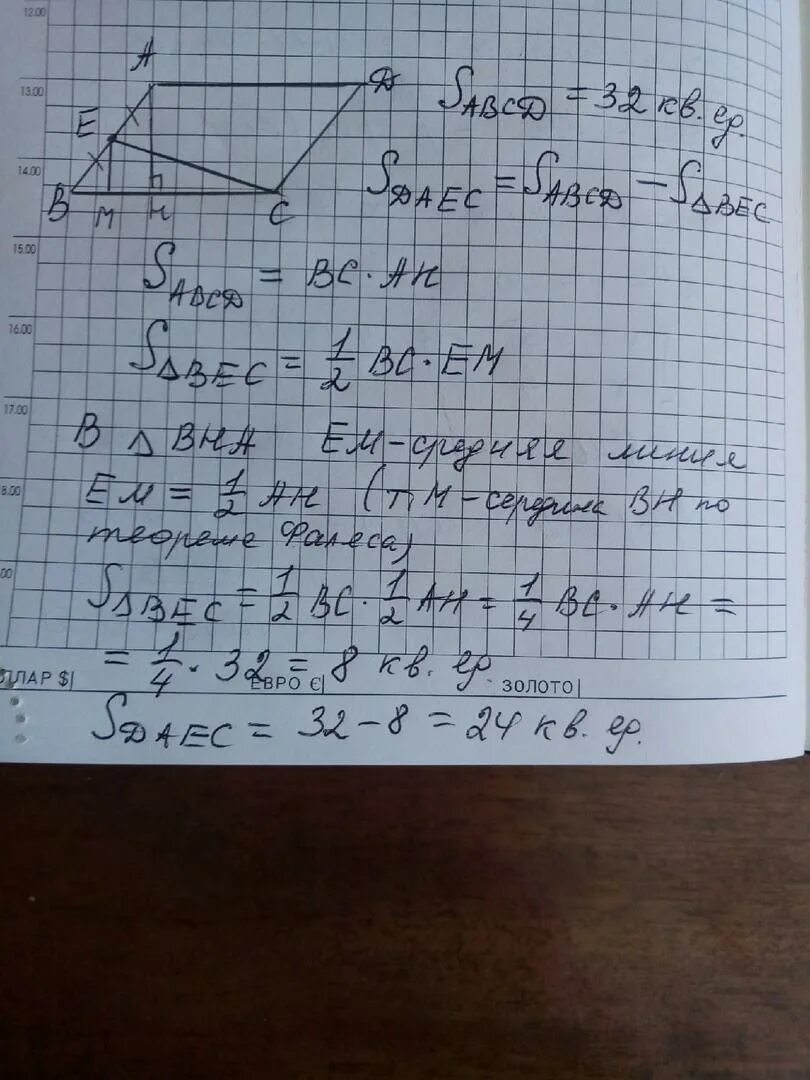 12.00
13.00
14.00
15.00
16.00
17.00
8.00
00
A
D
E
B M H C
S_ABCD = 32 кв. ед.
S_DAEC = S_ABCD − S_ΔBEC
S_ABCD = BC · AH
S_ΔBEC = 1/2 BC · EM
В Δ BHA EM - средняя линия
EM = 1/2 AH (т. M - середина BH по
теореме Фалеса)
S_ΔBEC = 1/2 BC · 1/2 AH = 1/4 BC · AH =
= 1/4 · 32 = 8 кв. ед.
ЛЛАР $| ЕВРО €| ЗОЛОТО|
S_DAEC = 32 − 8 = 24 кв. ед.